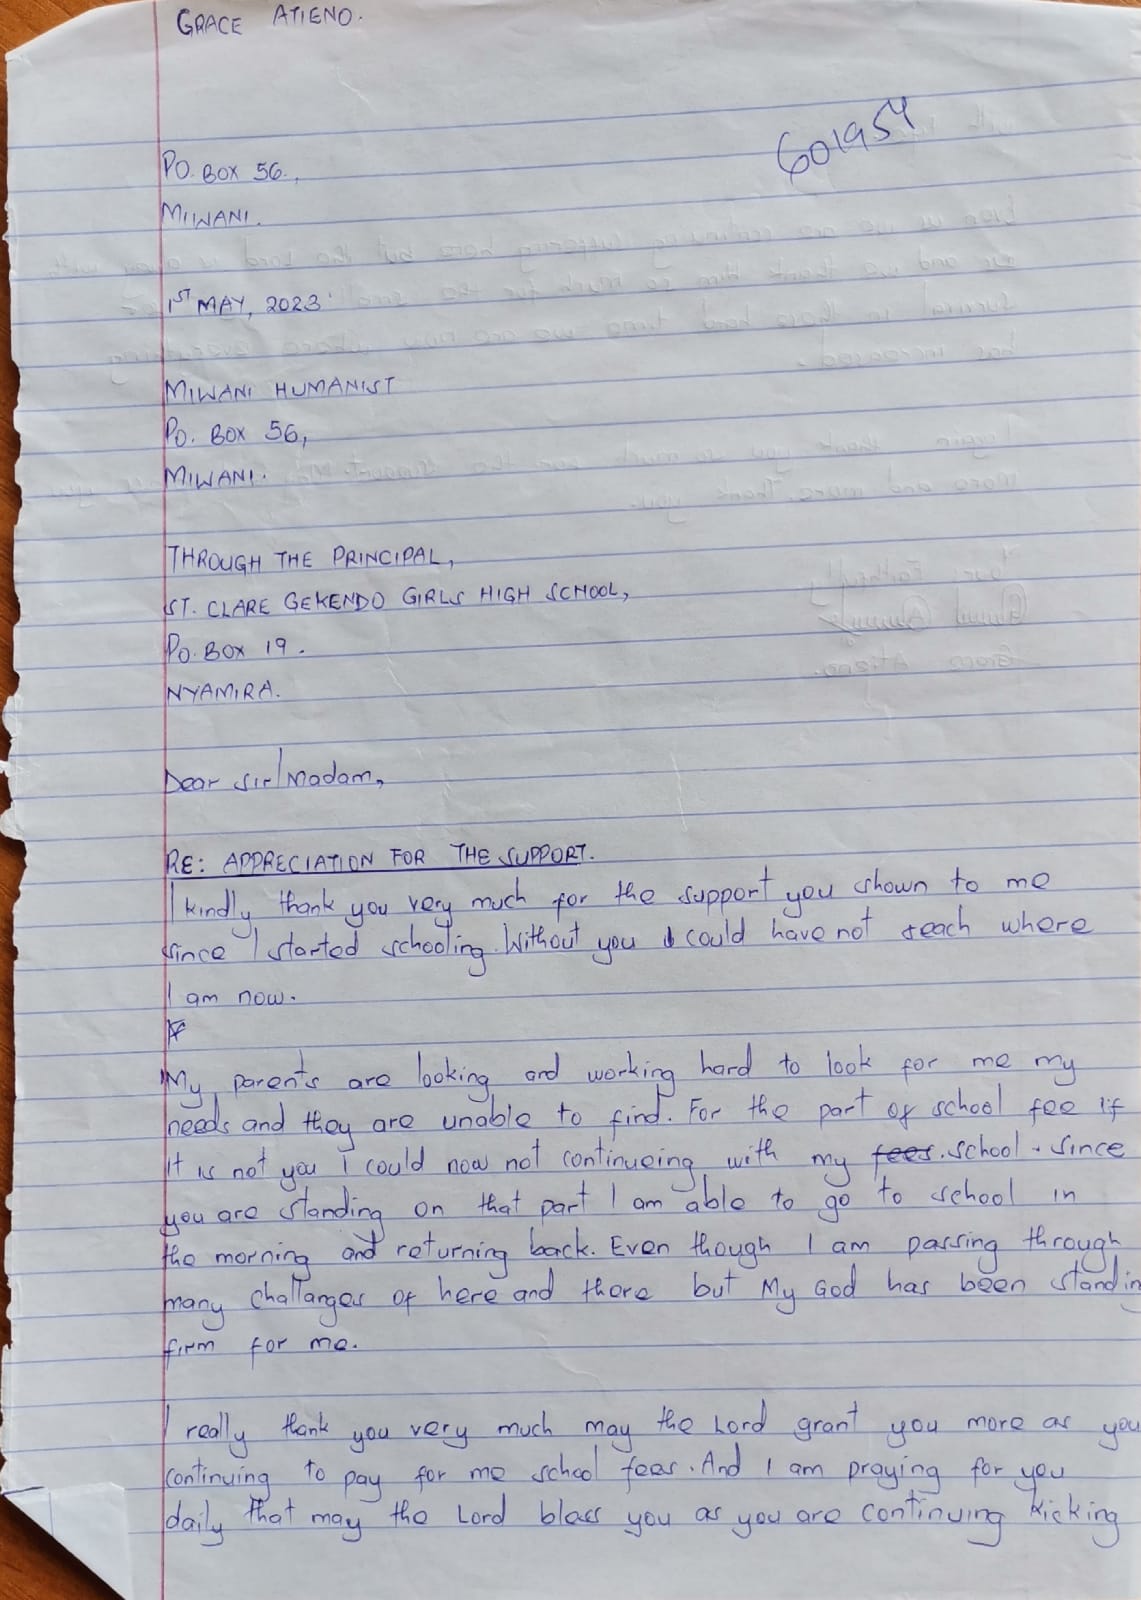 GRACE ATIENO.
601954
P.O. BOX 56.,
MIWANI.
1ST MAY, 2023
MIWANI HUMANIST
P.O. BOX 56,
MIWANI.
THROUGH THE PRINCIPAL,
ST. CLARE GEKENDO GIRLS HIGH SCHOOL,
P.O. BOX 19.
NYAMIRA.
Dear Sir/Madam,
RE: APPRECIATION FOR THE SUPPORT.
I kindly thank you very much for the support you shown to me
since I started schooling. Without you I could have not reach where
I am now.
My parents are looking and working hard to look for me my
needs and they are unable to find. For the part of school fee if
it is not you I could now not continueing with my fees. school. Since
you are standing on that part I am able to go to school in
the morning and returning back. Even though I am passing through
many challanges of here and there but My God has been standin
firm for me.
I really thank you very much may the Lord grant you more as you
continuing to pay for me school fees. And I am praying for you
daily that may the Lord bless you as you are continuing kicking